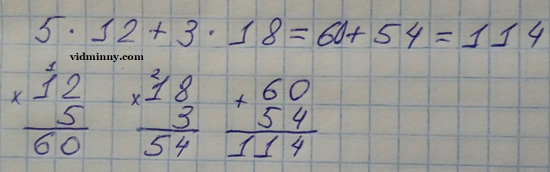 5 · 12 + 3 · 18 = 60 + 54 = 114
vidminny.com
1 2
× 12 × 18 + 60
5 3 54
60 54 114